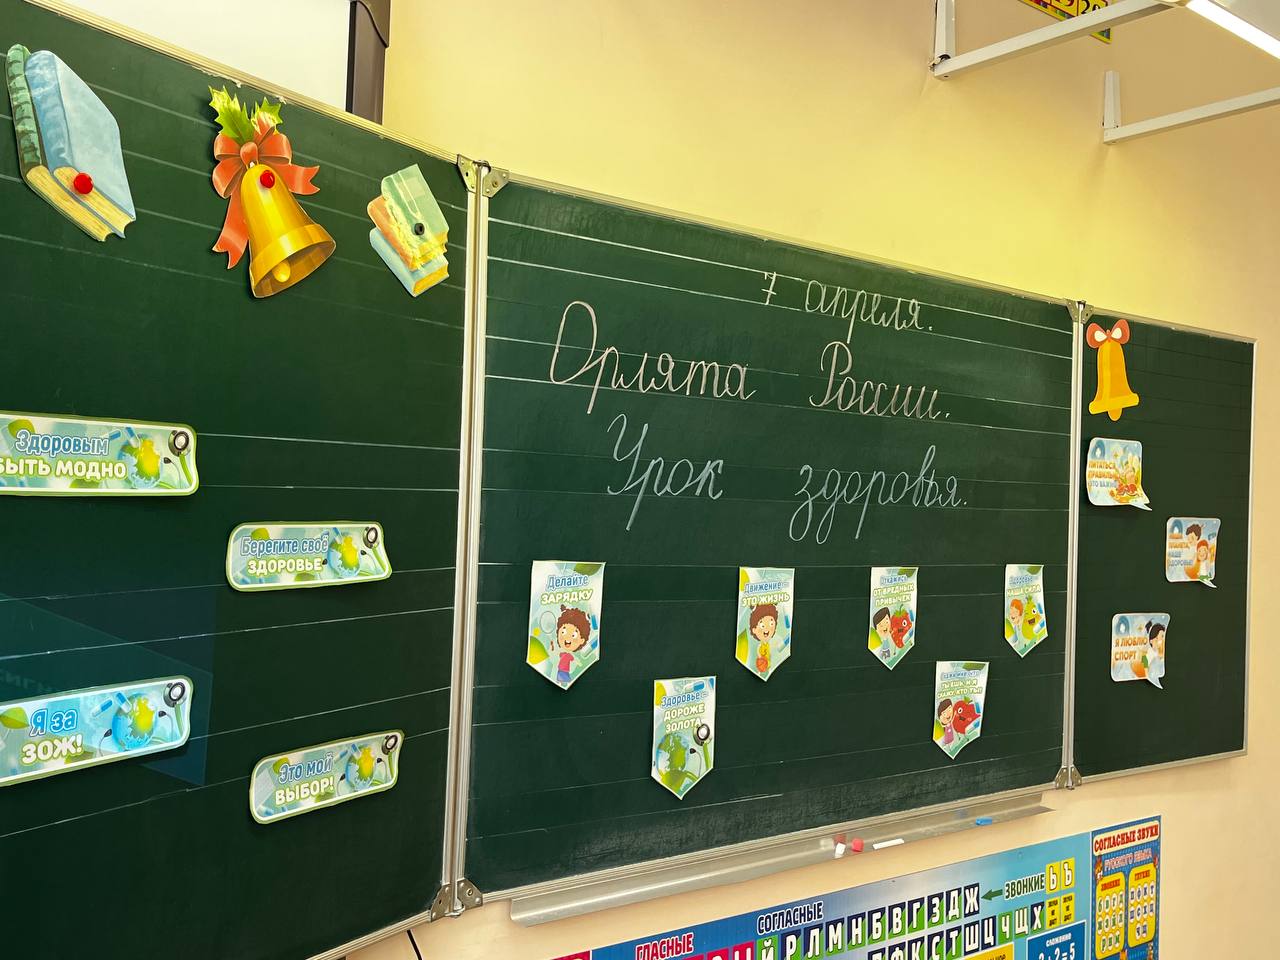 Здоровым
БЫТЬ МОДНО
Берегите своё
ЗДОРОВЬЕ
Я за
ЗОЖ!
Это мой
ВЫБОР!
7 апреля.
Орлята России.
Урок здоровья.
Делайте
ЗАРЯДКУ
Движение -
ЭТО ЖИЗНЬ
Откажись
ОТ ВРЕДНЫХ
ПРИВЫЧЕК
Здоровье -
НАША СИЛА
Здоровье -
ДОРОЖЕ
ЗОЛОТА
ТЫ ЕШЬ, И Я
СКАЖУ, КТО ТЫ
ПИТАТЬСЯ
ПРАВИЛЬНО
ЭТО ВАЖНО
ПЛАНЕТА,
ЗДОРОВЬЕ!
Я ЛЮБЛЮ
СПОРТ
СОГЛАСНЫЕ ЗВУКИ
РУССКОГО ЯЗЫКА
ЗВОНКИЕ
ГЛУХИЕ
ГЛАСНЫЕ
СОГЛАСНЫЕ
ЗВОНКИЕ
Ь Ъ
Й Р Л М Н Б В Г З Д Ж
П Ф К С Т Ш Ц Ч Щ Х
СЛОЖЕНИЕ
3+2=5